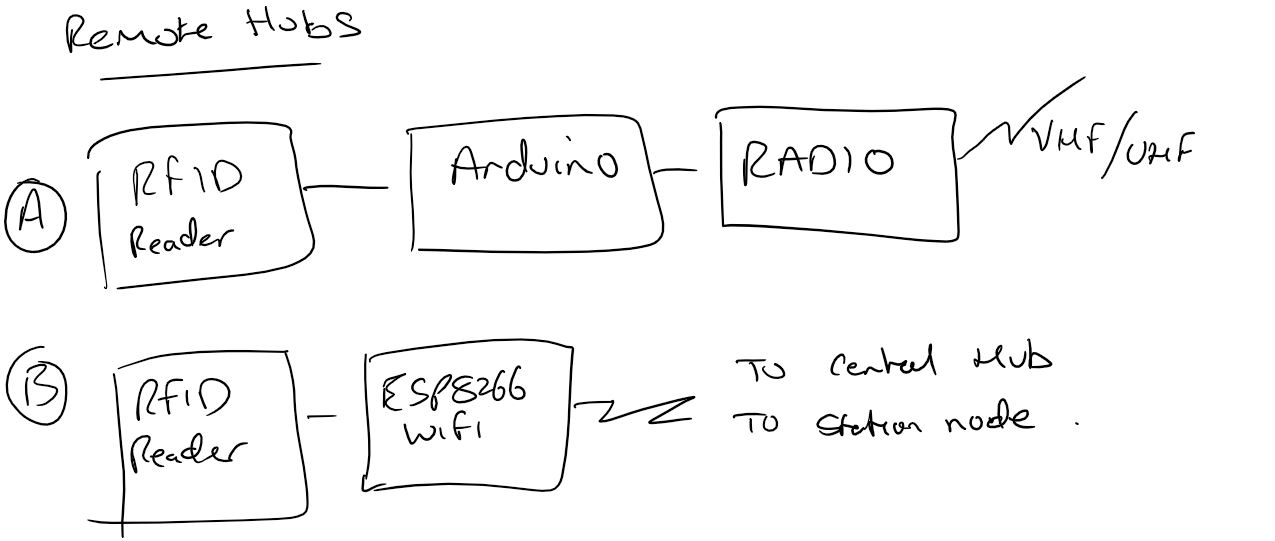 Remote Hubs
A
RFID
Reader
Arduino
RADIO
VHF/UHF
B
RFID
Reader
ESP8266
WiFi
TO Central Hub
TO Station node.